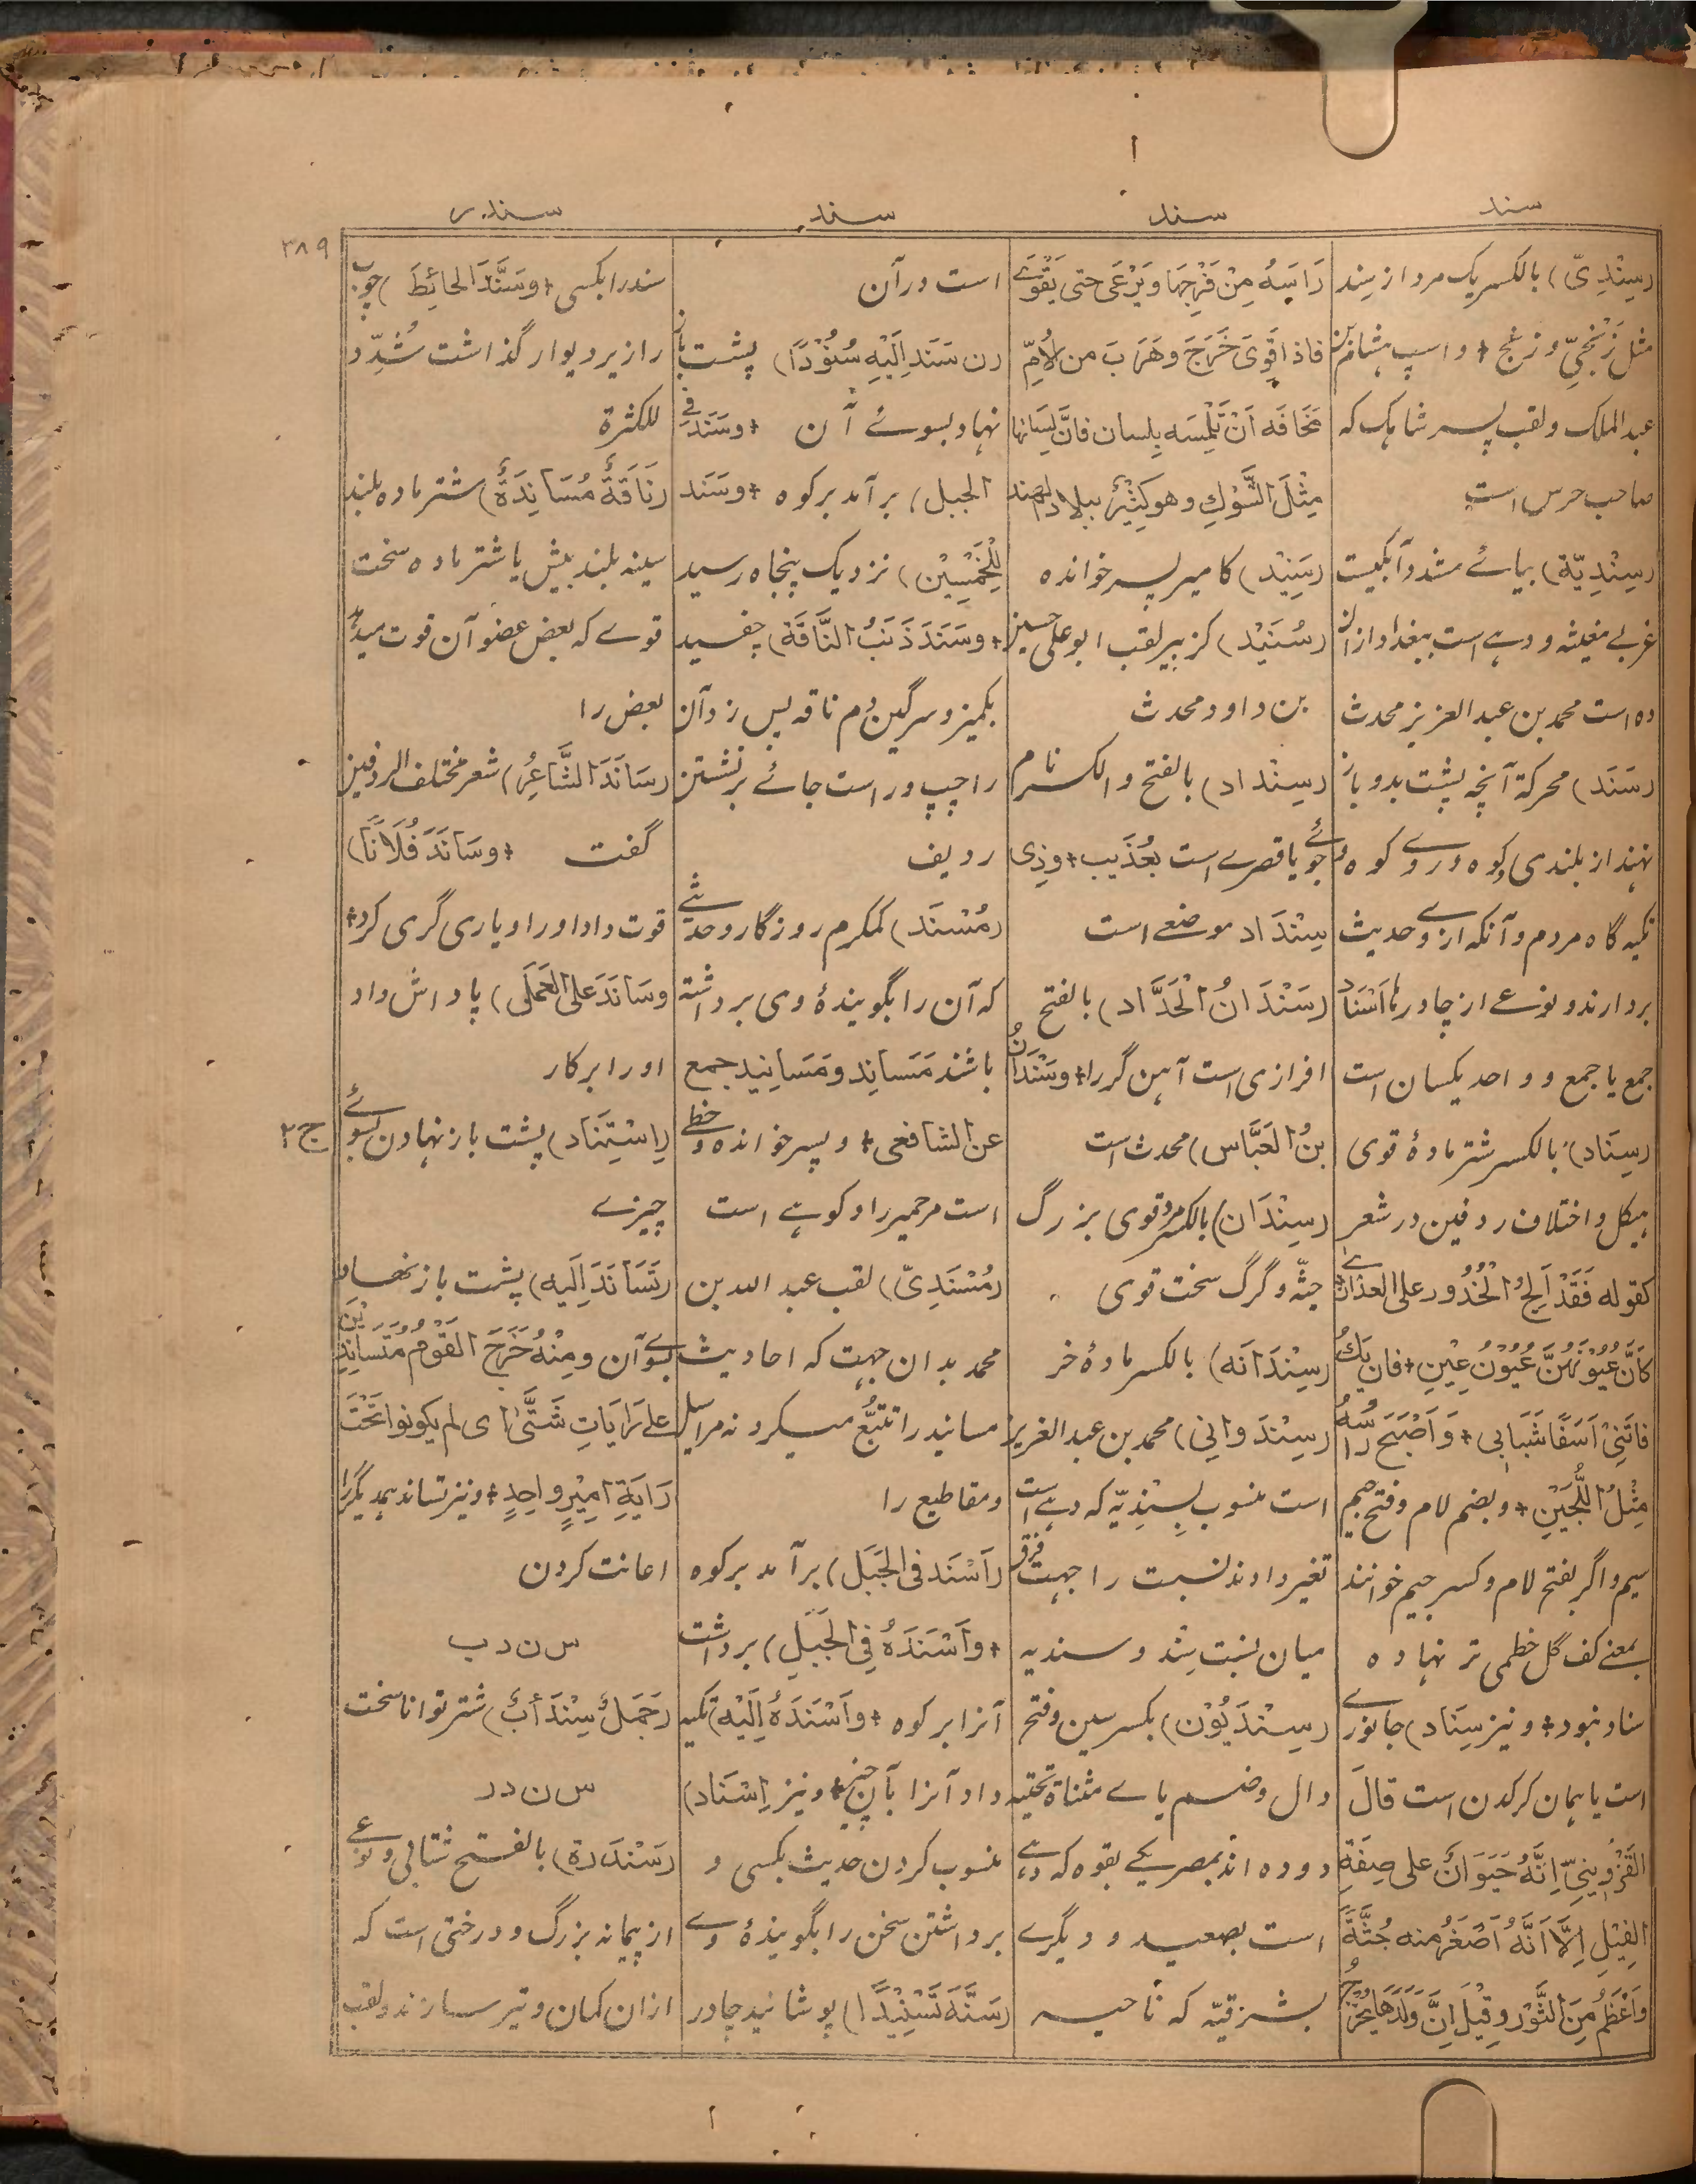 سند
سند
سند
سندر
۳۸۹
(سِنْدِیّ) بالکسر یک مرد از سِند
مثل زَنْجِیّ و زنج + و اسپ ہشام بن
عبد الملک و لقب پسر شاہک کہ
صاحب حرس است
(سِنْدِیَّة) بیائے مشدد آبکیست
غربے مغیثہ و دہے است ببغداد ازان
دہ است محمد بن عبد العزیز محدث
(سَنَد) محرکة آنچہ پشت بدو باز
نہند از بلندی کوہ و روے کوہ و
تکیہ گاہ مردم و آنکہ ازوے حدیث
بردارند و نوعے از چادرہا اَسْنَاد
جمع یا جمع و واحد یکسان است
(سِنَاد) بالکسر شتر مادۂ قوی
ہیکل و اختلاف ردفین در شعر
کقوله فَقَدْ اَلِجُ الْخُدُورَ علی العذاری
کَاَنَّ عُیُوْنَهُنَّ عُیُوْنُ عِیْنِ + فان یَكُ
فاتَنِیْ اَسَفًا شَبَابِی + وَ اَصْبَحَ رَاْسُهُ
مِثْلَ اللُّجَیْنِ + و بضم لام و فتح جیم
سیم و اگر بفتح لام و کسر جیم خوانند
بمعنے کف گل خطمی تر نہادہ
سناد نبود + و نیز سِنَاد) جانورے
است یا ہمان کرگدن است قالَ
القَزْوِینِیّ اِنَّهُ حَیَوَانٌ علی صِفَةِ
الفِیْلِ اِلَّا اَنَّهُ اَصْغَرُ منه جُثَّةً
وَاَعْظَمُ مِنَ الثَّوْرِ وقِیْلَ اِنَّ وَلَدَهَا یُخْرِجُ
رَاسَهُ مِنْ فَرْجِهَا وَیَرْعَی حتی یَقْوَے
فاذا قَوِیَ خَرَجَ وهَرَبَ من الْاُمِّ
مَخَافَه اَنْ تَلْمِسَه بِلِسان فانَّ لِسَانها
مِثْلَ الشَّوْكِ وهو کَثِیْرٌ ببلاد الهند
(سَنِیْد) کامیر پسر خواندہ
(سُنَیْد) کزبیر لقب ابو علی حسین
بن داود محدث
(سِنْداد) بالفتح و الکسر نام
جوئے یا قصرے است بعُذَیب + وذِی
سِنْدَاد موضعے است
(سَنْدَانُ الْحَدَّاد) بالفتح
افزاری است آہن گر را + وسَنْدَانُ
بنُ العَبَّاس) محدث است
(سِنْدَان) بالکسر مرد قوی بزرگ
جثّہ و گرگ سخت قوی
(سِنْدَانَه) بالکسر مادۂ خر
(سِنْدَوانِي) محمد بن عبد العزیز
است منسوب بسِنْدِیّہ کہ دہے است
تغیر دادند نسبت را جہت فرق
میان نسبت سِند و سندیہ
(سِنْدَیُوْن) بکسر سین و فتح
دال و ضم یاے مثناة تحتیہ
دو دہ اند بمصر یکے بفوہ کہ دہے
است بصعید و دیگرے
بشرقیّہ کہ ناحیہ
است در آن
(ن سَنَدَ اِلَیْهِ سُنُوْدًا) پشت باز
نہاد بسوئے آن + وسَنَدَ فے
الجبل) بر آمد بر کوہ + وسَنَد
لِلْخَمْسِیْن) نزدیک پنجاہ رسید
+ وسَنَدَ ذَنَبُ النَّاقَة) چفسید
بکمیز و سرگین دُم ناقہ پس زد آن
را چپ و راست جائے بر نشستن
ردیف
(مُسْنَد) کمکرم روزگار و حدیثے
کہ آن را بگویندۂ وی برداشتہ
باشند مَسَانِد و مَسَانِید جمع
عن الشافعی + و پسر خواندہ و خطے
است مر حمیر را و کوہے است
(مُسْنَدِیّ) لقب عبد اللہ بن
محمد بدان جہت کہ احادیث
مسانید را تتبُّع میکرد نہ مراسیل
و مقاطیع را
(اَسْنَد فی الجَبَل) بر آمد بر کوہ
+ واَسْنَدَهُ فِی الجَبَلِ) برداشت
آنرا بر کوہ + واَسْنَدَهُ اِلَیْه) تکیہ
داد آنرا بآن چیز + و نیز اِسْنَاد)
منسوب کردن حدیث بکسی و
برداشتن سخن را بگویندۂ وے
(سَنَّدَ تَسْنِیْدًا) پوشانید چادر
سند را بکسی + وسَنَّدَ الحائِطَ) چوب
را زیر دیوار گذاشت شُدِّد
للکثرة
(نَاقَةٌ مُسَانِدَةٌ) شتر مادہ بلند
سینہ بلند پیش یا شتر مادہ سخت
قوے کہ بعض عضو آن قوت میدہد
بعض را
(سَانَدَ الشَّاعِرُ) شعر مختلف الردفین
گفت + وسَانَدَ فُلَانًا)
قوت داد او را و یاری گری کرد +
وسَانَدَ علی العَمَلِ) پاداش داد
او را بر کار
(اِسْتِنَاد) پشت باز نہادن بسوئے
ج ۲
چیزے
(تَسَانَدَ اِلَیه) پشت باز نهاد
بسوے آن ومِنْهُ خَرَجَ القَوْمُ مُتَسَانِدِیْنَ
علے رَایَاتٍ شَتَّی ای لم یکونوا تَحْتَ
رَایَةِ امِیْرٍ واحِدٍ + و نیز تساند ہمدیگر را
اعانت کردن
س ن د ب
(جَمَلٌ سِنْدَأبٌ) شتر توانا سخت
س ن د ر
(سَنْدَرة) بالفتح شتابی و نوعے
از پیمانہ بزرگ و درختی است کہ
ازان کمان و تیر سازند و لقب